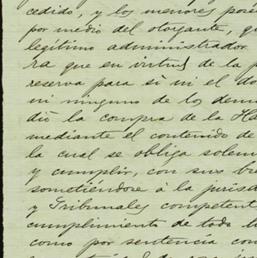 cedido, y los menores
por medio del otorgante, qu
legítimo administrador
ra que en virtud de la p
reserva para si ni el do
ni ninguno de los demá
dió la compra de la Ha
mediante el contenido de
la cual se obliga solem
y cumplir, con sus bie
sometiéndose á la jurisd
y Tribunales competent
cumplimiento de todo lo
como por sentencia con